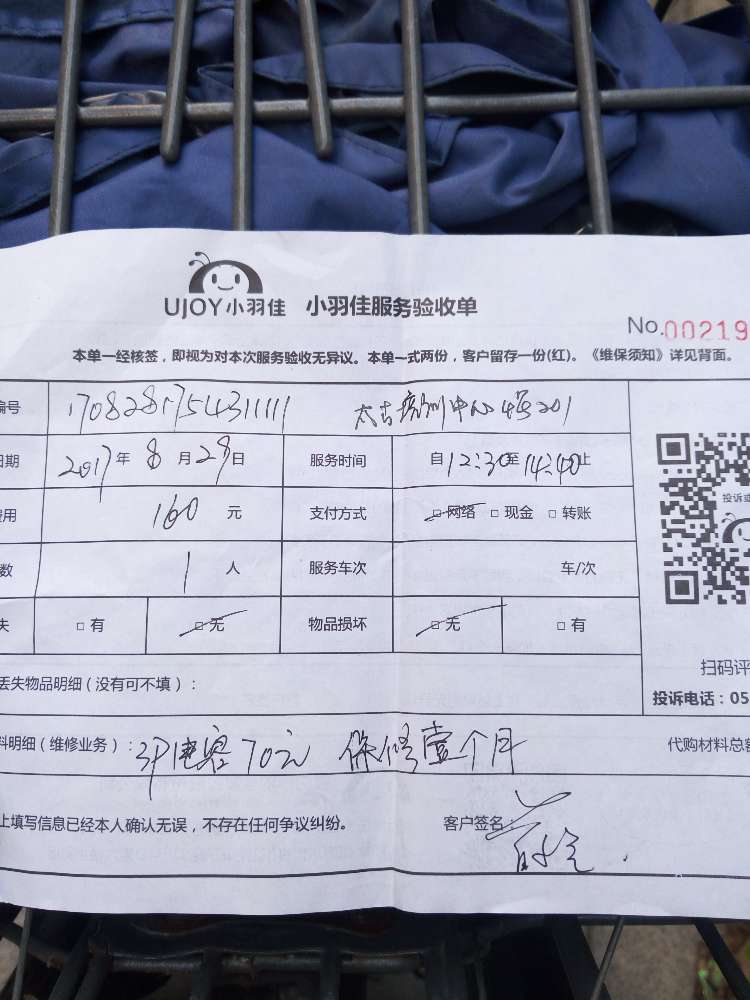 UJOY小羽佳 小羽佳服务验收单
No.00219
本单一经核签，即视为对本次服务验收无异议。本单一式两份，客户留存一份(红)。《维保须知》详见背面。
编号 太古 中心4号201
日期 2017年8月29日 服务时间 自12:30至14:40止
费用 160元 支付方式 □网络 □现金 □转账
数 1人 服务车次 车/次
失 □有 □无 物品损坏 □无 □有
投诉或
扫码评
丢失物品明细（没有可不填）：
投诉电话：05
料明细（维修业务）：3P电容70元 保修壹个月
代购材料总
上填写信息已经本人确认无误，不存在任何争议纠纷。 客户签名：